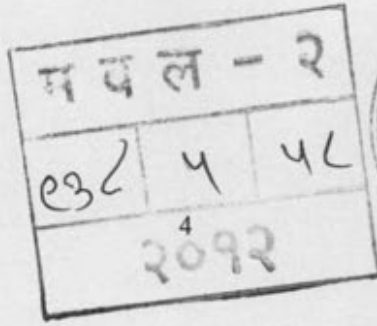 प व ल - २
९३८ ५ ५८
4
२०१२